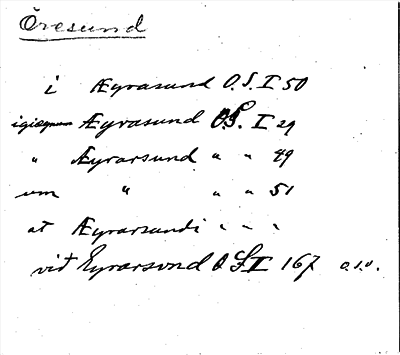 Öresund
i Ægrasund O.S.I 50
igiægnum Ægrasund O.S. I 29
" Ægrarsund " " 49
um " " " 51
at Ægrarsundi " " "
vid Eyrarsvnd O S I 167 o.s.v.